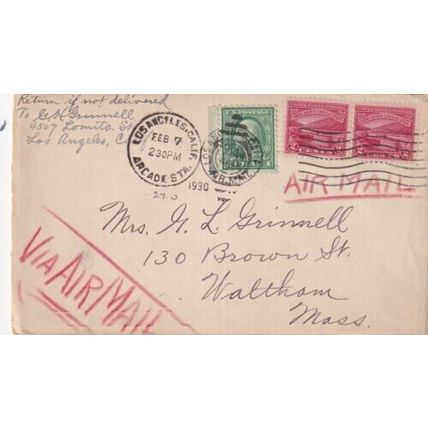 Return if not delivered
To G H Grinnell
4507 Lomita St
Los Angeles, Ca
LOS ANGELES, CALIF.
FEB 7
230PM
ARCADE STA.
1930
U.S. POSTAGE
AIR MAIL
Mrs. G. L. Grinnell
130 Brown St.
Waltham
Mass.
VIA AIR MAIL